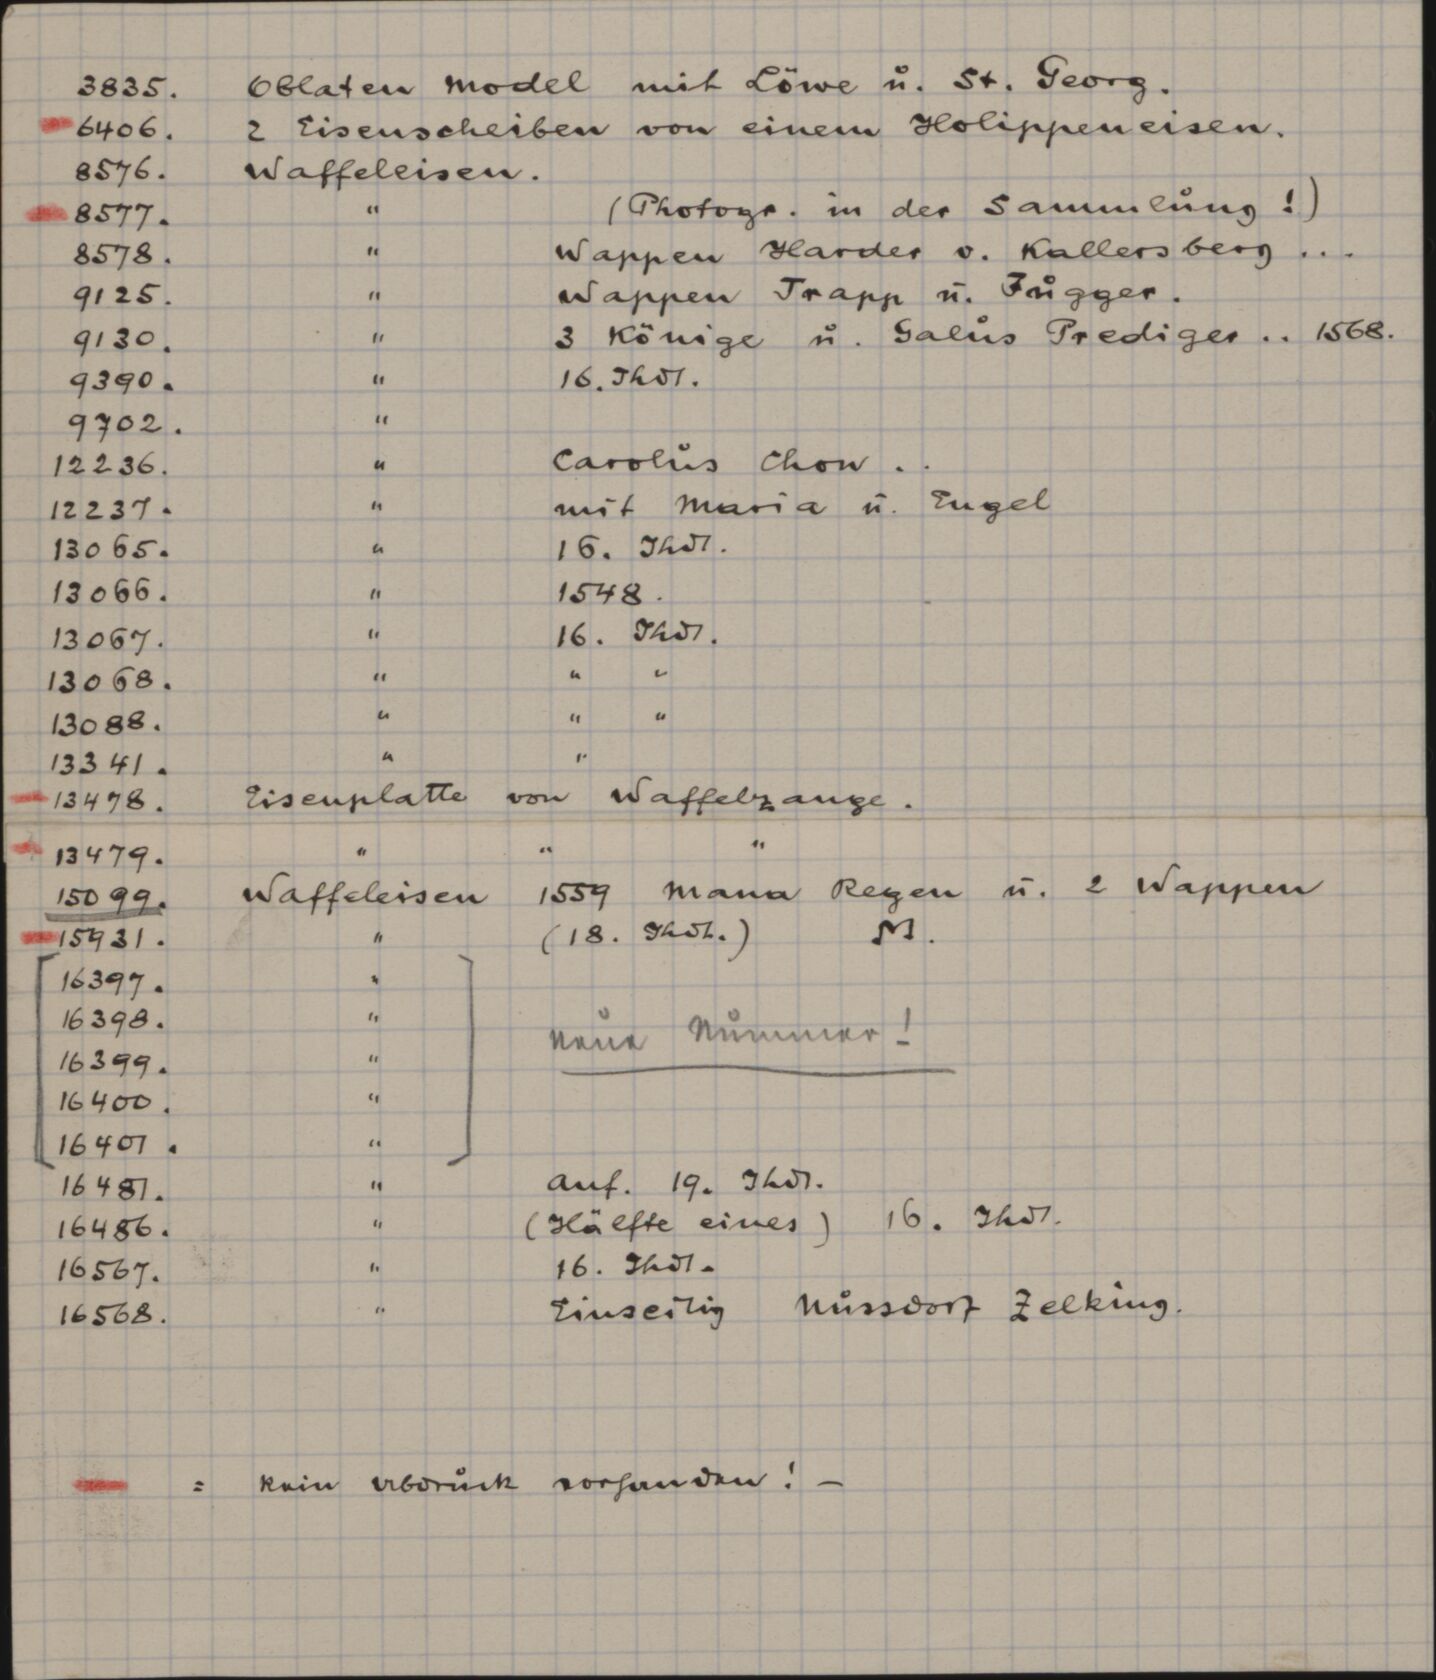 3835. Oblaten Model mit Löwe u. St. Georg.
6406. 2 Eisenscheiben von einem Holippeneisen.
8576. Waffeleisen.
8577. " (Photogr. in der Sammlung!)
8578. " Wappen Harder v. Kallersberg ...
9125. " Wappen Trapp u. Fugger.
9130. " 3 Könige u. Galus Prediger .. 1568.
9390. " 16. Jhdt.
9702. "
12236. " Carolus Chon ..
12237. " mit Maria u. Engel
13065. " 16. Jhdt.
13066. " 1548.
13067. " 16. Jhdt.
13068. " " "
13088. " " "
13341. " "
13478. Eisenplatte von Waffelzange.
13479. " " "
15099. Waffeleisen 1559 Mana Regen u. 2 Wappen
15931. " (18. Jhdt.) M.
[16397. " ]
16398. "
16399. " neue Nummer!
16400. "
16401. "
16481. " Anf. 19. Jhdt.
16486. " (Hälfte eines) 16. Jhdt.
16567. " 16. Jhdt.
16568. " Einseitig Nussdorf Zelking.
= kein Abdruck vorhanden! –